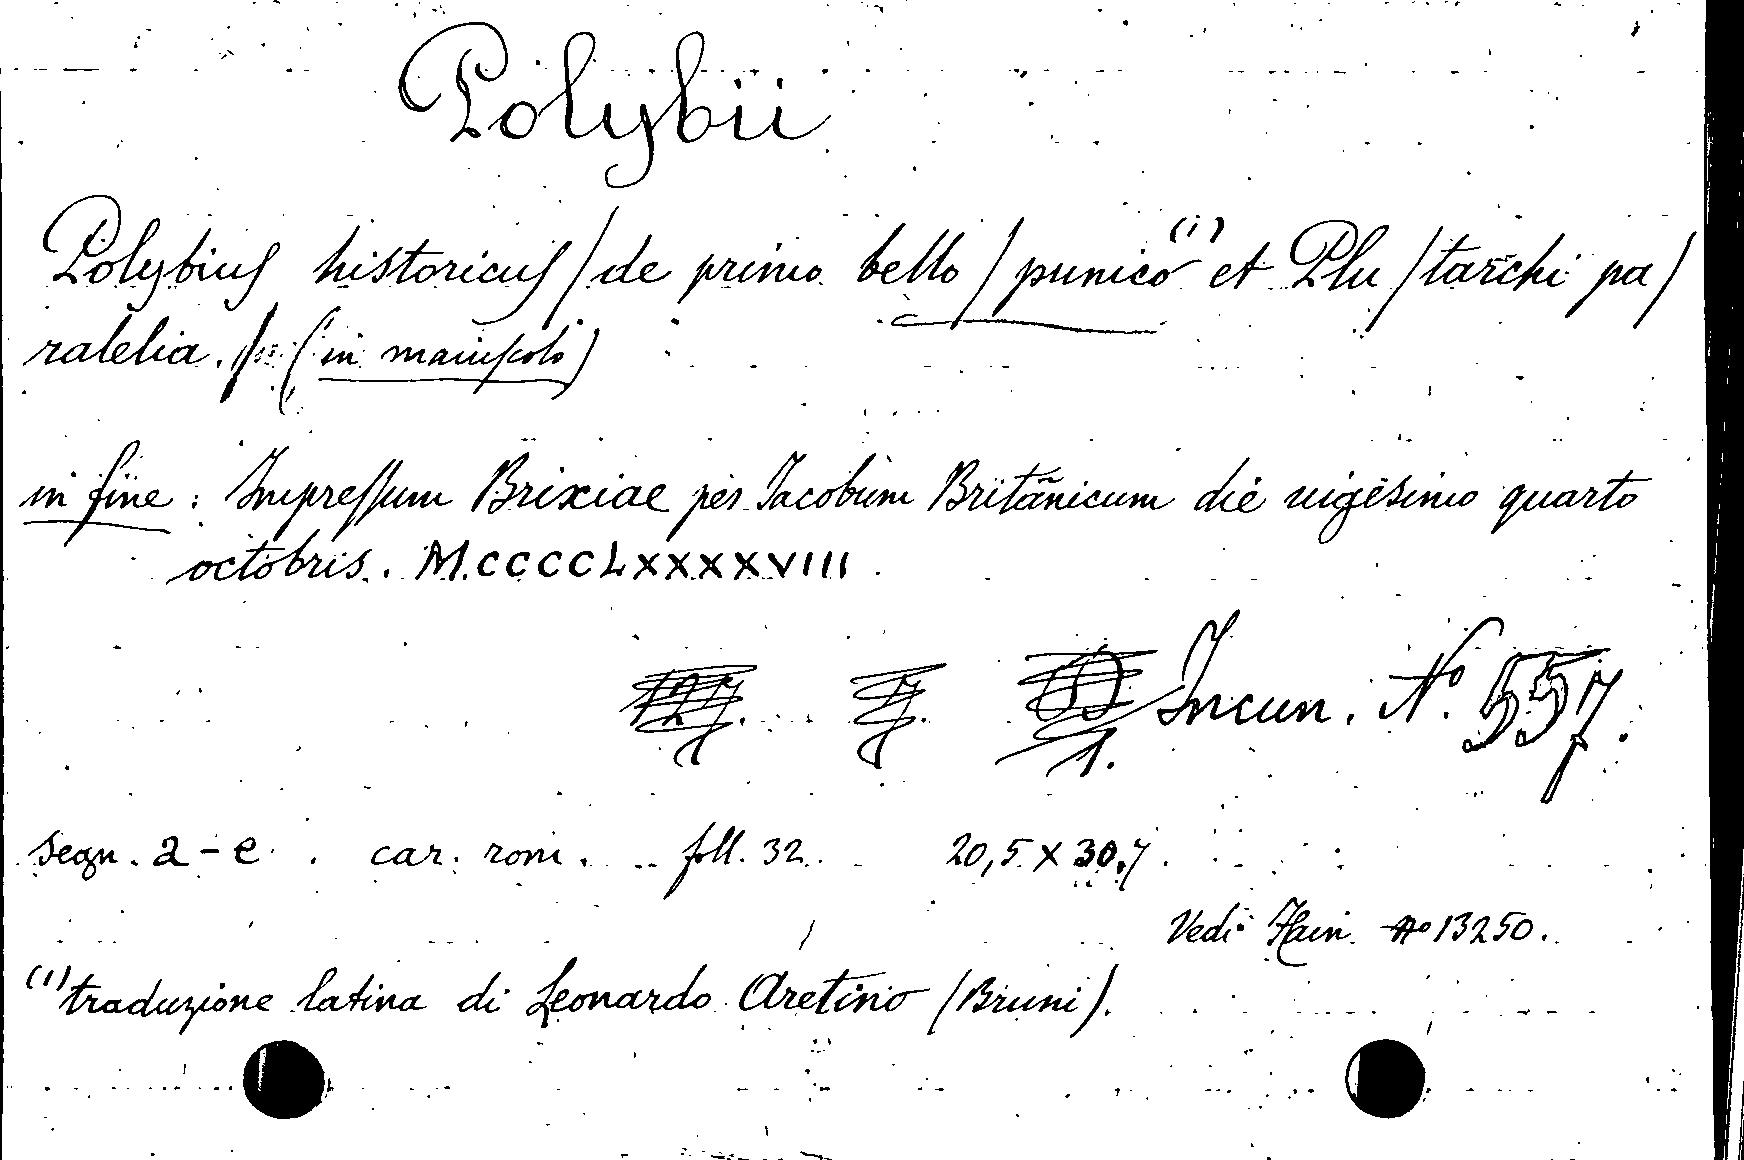 Polybii
Polybiuſ historicuſ / de primo bello / punico (1) et Plu / tarchi pa /
ralelia. (in maiuſcolo)
in fine : Impreſſum Brixiae per Jacobum Britãnicum die uigesimo quarto
octobris. M.CCCCLXXXXVIII.
Incun. No 557.
1.
segn. a - e . car. rom. foll. 32. 20,5 x 30.7.
Vedi Hain no 13250.
(1) traduzione latina di Leonardo Aretino (Bruni).